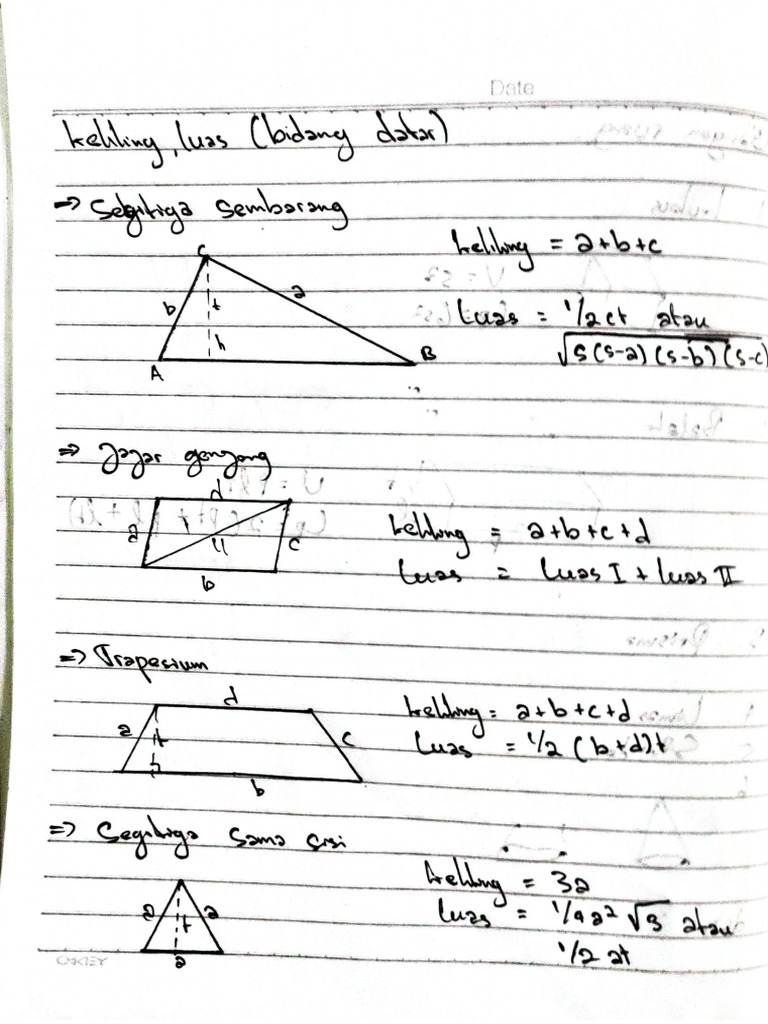 Date
Keliling, luas (bidang datar)
=> Segitiga sembarang
C
Keliling = a+b+c
b
t
a
Luas = 1/2 ct atau
√s(s-a)(s-b)(s-c)
h
A
B
=> Jajar genjang
d
a
I
II
c
b
Keliling = a+b+c+d
Luas = Luas I + Luas II
=> Trapesium
d
a
t
c
b
Keliling = a+b+c+d
Luas = 1/2 (b+d)t
=> Segitiga sama sisi
Keliling = 3a
a
t
a
Luas = 1/4 a² √3 atau
1/2 at
a
OKEY